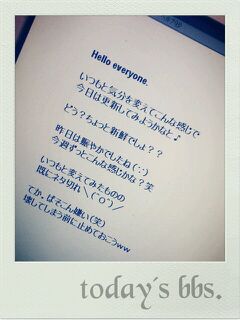 Hello everyone.
いつもと気分を変えてこんな感じで
今日は更新してみようかなと♪
どう？ちょっと新鮮でしょ？？
昨日は賑やかでしたね(·;)
今週ずっとこんな感じかな？笑
いつもと変えてみたものの
既にネタ切れ＼(^o^)／
てか、ぱそこん嫌い(笑)
壊してしまう前に止めておこうww
today's bbs.